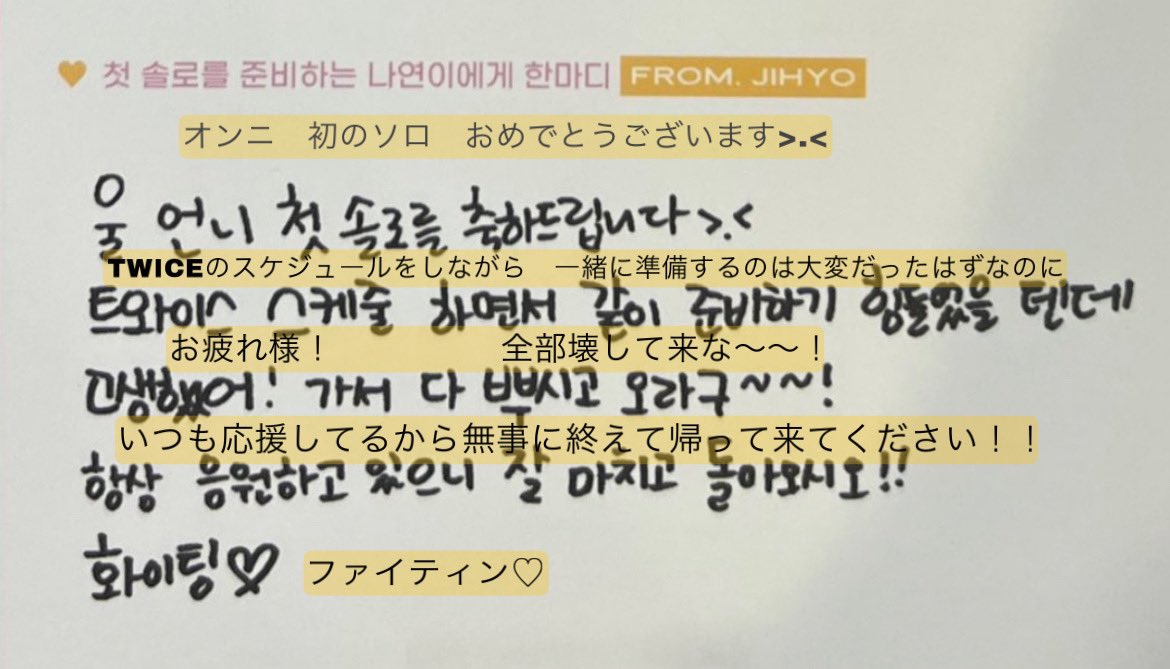 첫 솔로를 준비하는 나연이에게 한마디 FROM. JIHYO
オンニ 初のソロ おめでとうございます>.<
울 언니 첫 솔로를 축하드립니다>.<
TWICEのスケジュールをしながら 一緒に準備するのは大変だったはずなのに
트와이스 스케줄 하면서 같이 준비하기 힘들었을 텐데
お疲れ様！ 全部壊して来な〜〜！
고생했어! 가서 다 뿌시고 오라구~~!
いつも応援してるから無事に終えて帰って来てください！！
항상 응원하고 있으니 잘 마치고 돌아오시오!!
화이팅♡ ファイティン♡